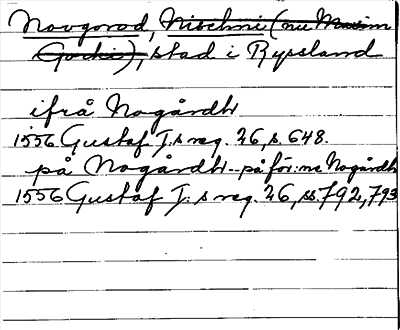 Novgorod, Nischni (nu Maxim
Gorki), stad i Ryssland
ifrå Nogårdh
1556 Gustaf I:s reg. 26, s. 648.
på Nogårdh - på för:ne Nogårdh
1556 Gustaf I:s reg. 26, ss. 792, 793